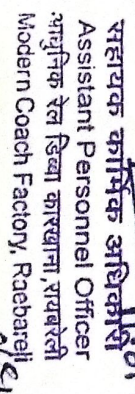 सहायक कार्मिक अधिकारी
Assistant Personnel Officer
आधुनिक रेल डिब्बा कारखाना, रायबरेली
Modern Coach Factory, Raebareli